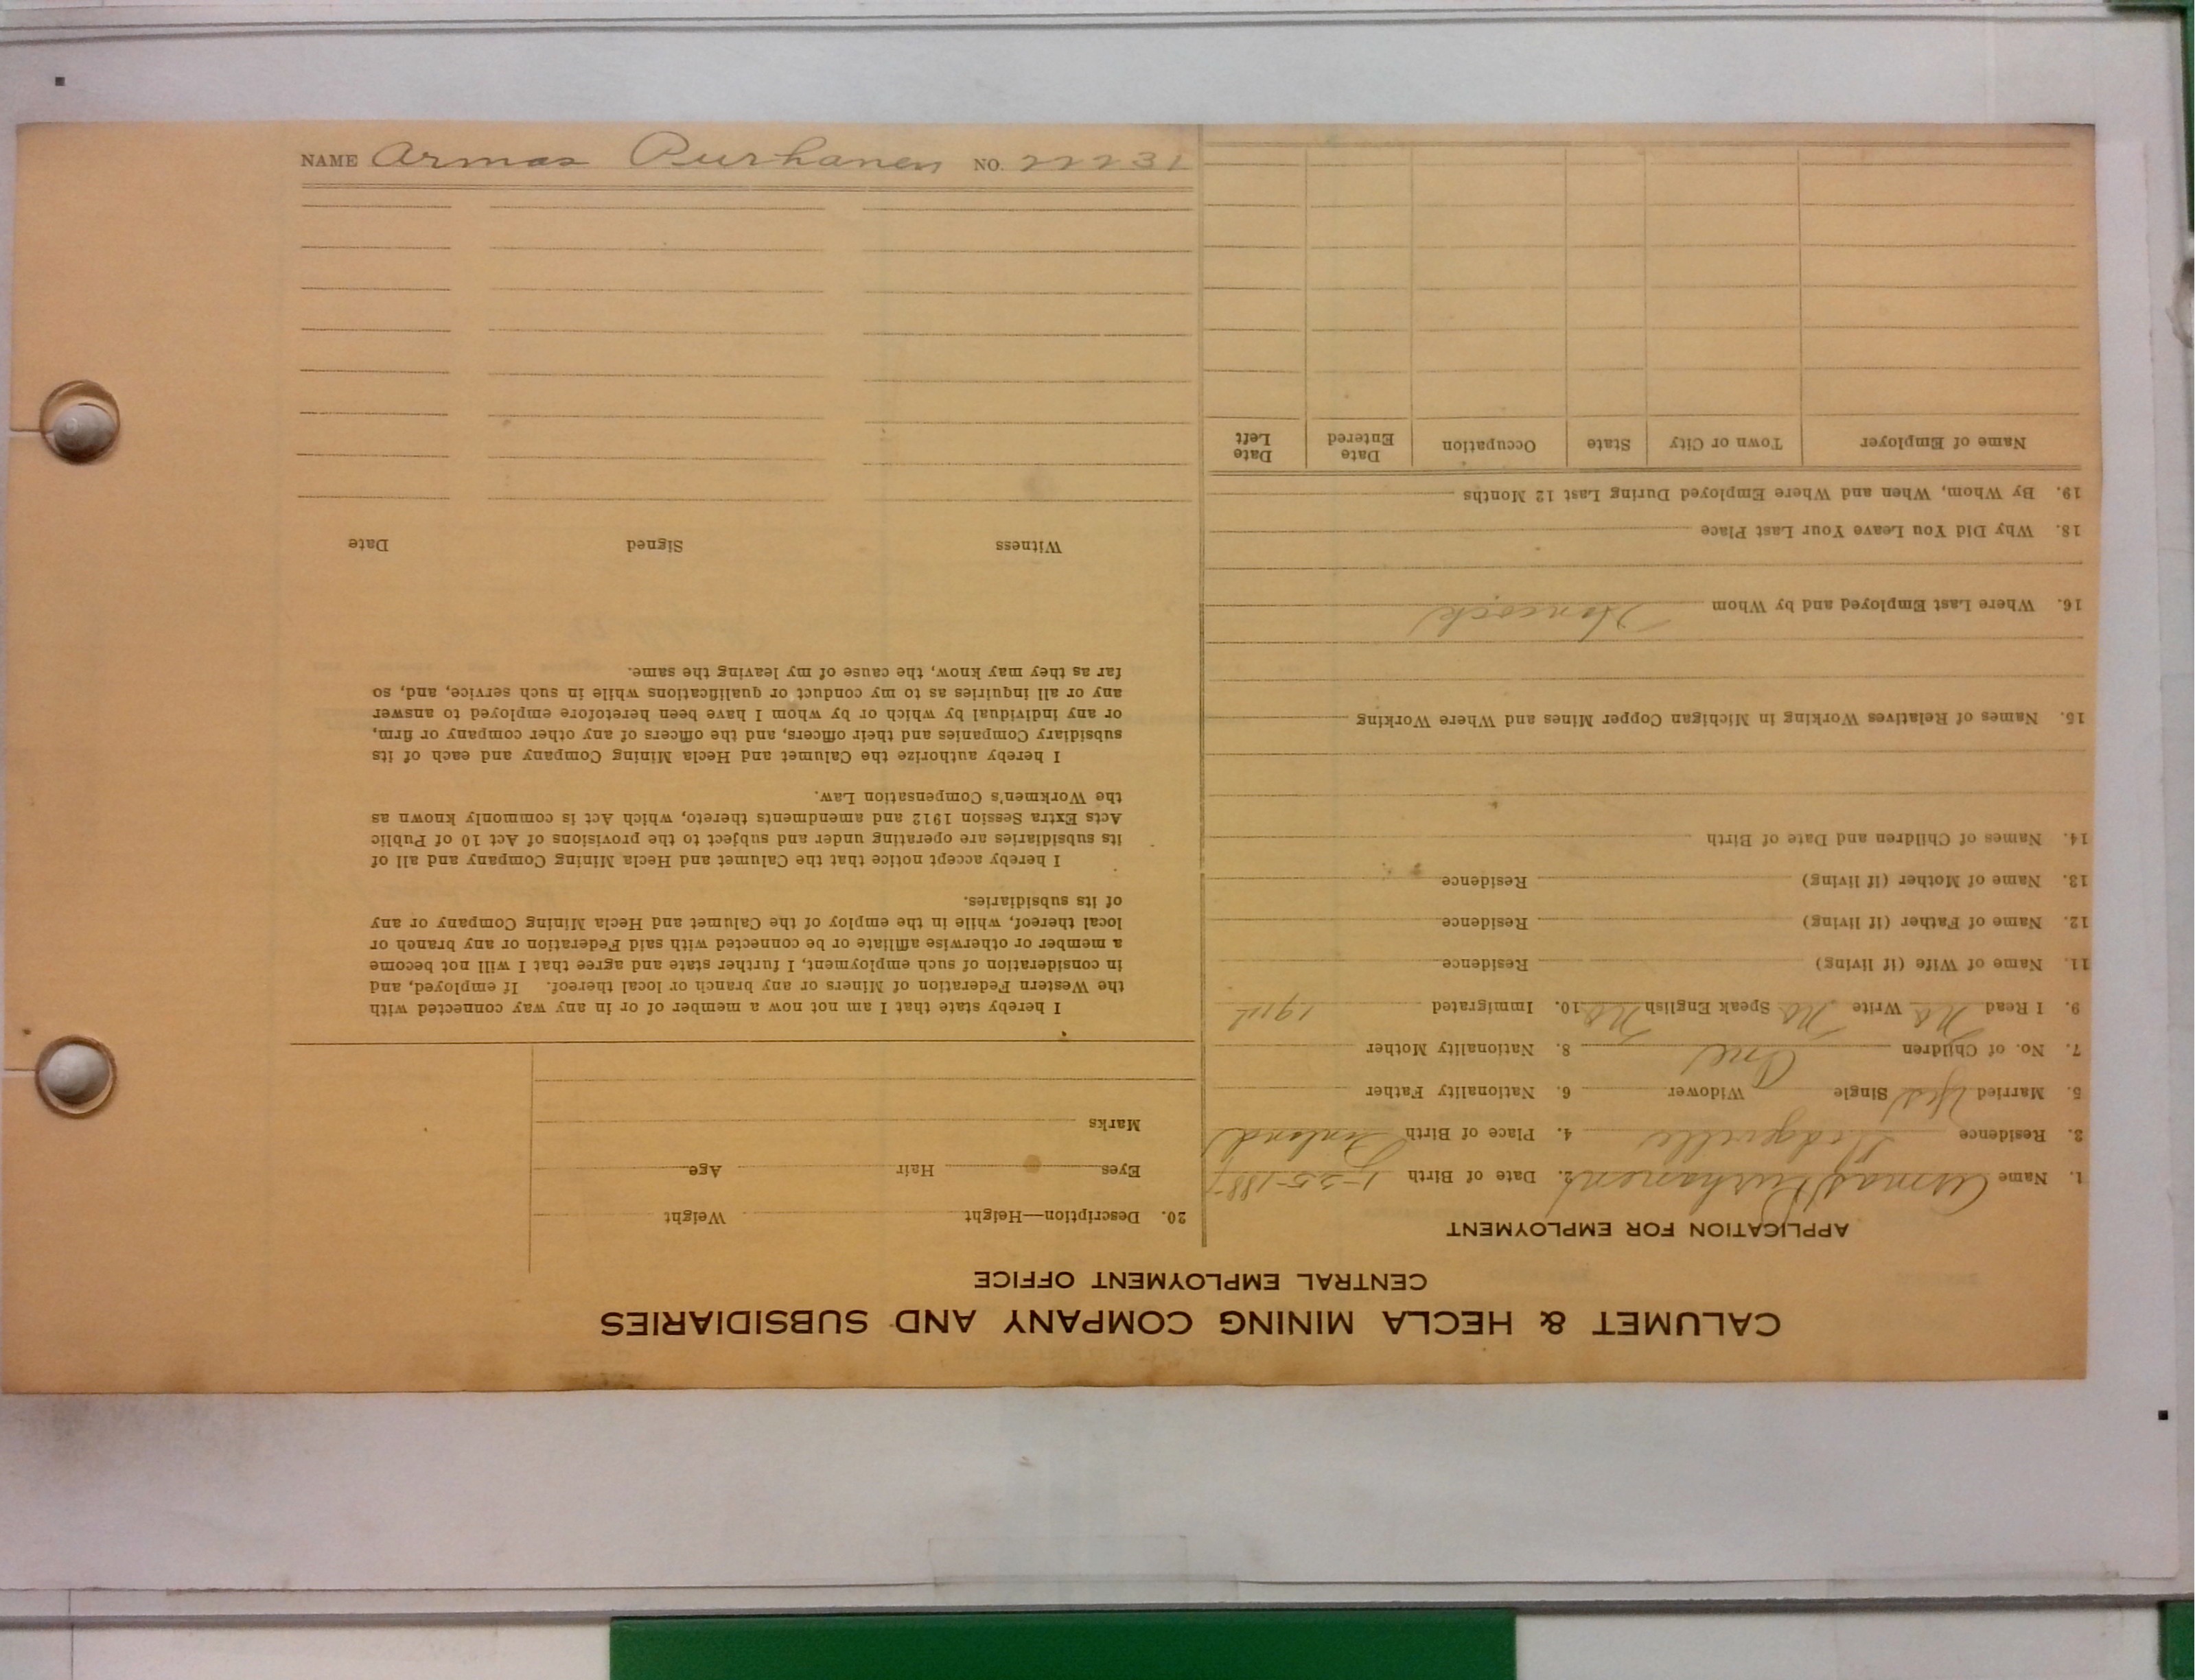 CALUMET & HECLA MINING COMPANY AND SUBSIDIARIES
CENTRAL EMPLOYMENT OFFICE
APPLICATION FOR EMPLOYMENT
1. Name Armas Purhanen 2. Date of Birth
3. Residence 4. Place of Birth Finland
5. Married Yes Single Widower 6. Nationality Father
7. No. of Children One 8. Nationality Mother
9. I Read No Write No Speak English No 10. Immigrated
11. Name of Wife (if living) Residence
12. Name of Father (if living) Residence
13. Name of Mother (if living) Residence
14. Names of Children and Date of Birth
15. Names of Relatives Working in Michigan Copper Mines and Where Working
16. Where Last Employed and by Whom Hancock
18. Why Did You Leave Your Last Place
19. By Whom, When and Where Employed During Last 12 Months
Name of Employer Town or City State Occupation Date Entered Date Left
20. Description—Height Weight
Eyes Hair Age
Marks
I hereby state that I am not now a member of or in any way connected with
the Western Federation of Miners or any branch or local thereof. If employed, and
in consideration of such employment, I further state and agree that I will not become
a member or otherwise affiliate or be connected with said Federation or any branch or
local thereof, while in the employ of the Calumet and Hecla Mining Company or any
of its subsidiaries.
I hereby accept notice that the Calumet and Hecla Mining Company and all of
its subsidiaries are operating under and subject to the provisions of Act 10 of Public
Acts Extra Session 1912 and amendments thereto, which Act is commonly known as
the Workmen's Compensation Law.
I hereby authorize the Calumet and Hecla Mining Company and each of its
subsidiary Companies and their officers, and the officers of any other company or firm,
or any individual by which or by whom I have been heretofore employed to answer
any or all inquiries as to my conduct or qualifications while in such service, and, so
far as they may know, the cause of my leaving the same.
Witness Signed Date
NAME Armas Purhanen NO. 22231